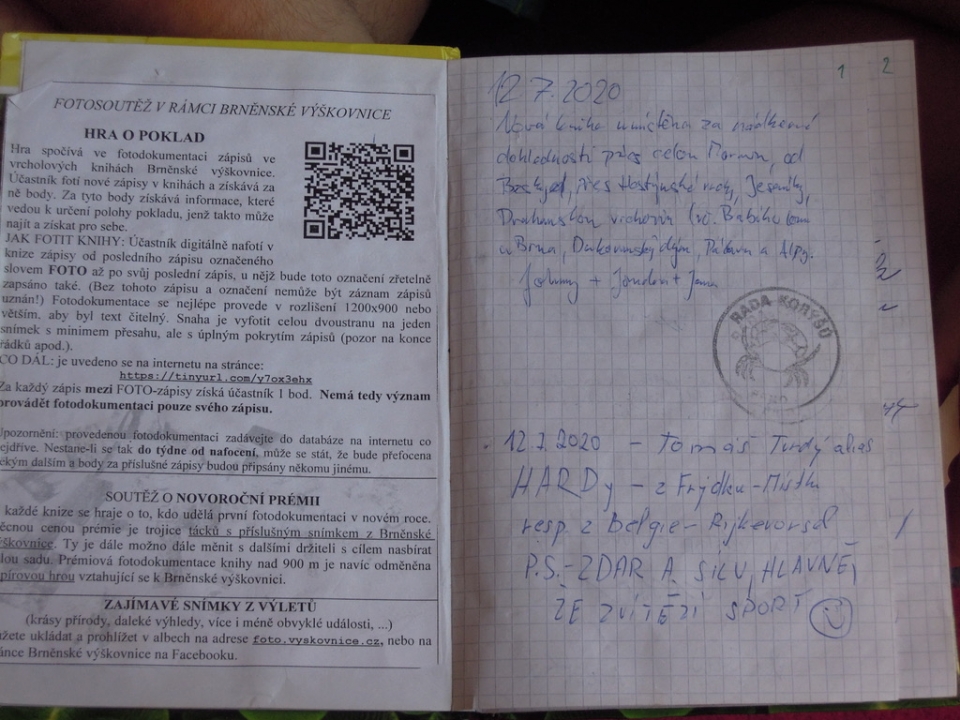 FOTOSOUTĚŽ V RÁMCI BRNĚNSKÉ VÝŠKOVNICE
HRA O POKLAD
Hra spočívá ve fotodokumentaci zápisů ve
vrcholových knihách Brněnské výškovnice.
Účastník fotí nové zápisy v knihách a získává za
ně body. Za tyto body získává informace, které
vedou k určení polohy pokladu, jenž takto může
najít a získat pro sebe.
JAK FOTIT KNIHY: Účastník digitálně nafotí v
knize zápisy od posledního zápisu označeného
slovem FOTO až po svůj poslední zápis, u nějž bude toto označení zřetelně
zapsáno také. (Bez tohoto zápisu a označení nemůže být záznam zápisů
uznán!) Fotodokumentace se nejlépe provede v rozlišení 1200x900 nebo
větším, aby byl text čitelný. Snaha je vyfotit celou dvoustranu na jeden
snímek s minimem přesahu, ale s úplným pokrytím zápisů (pozor na konce
řádků apod.).
CO DÁL: je uvedeno se na internetu na stránce:
https://tinyurl.com/y7ox3ehx
Za každý zápis mezi FOTO-zápisy získá účastník 1 bod. Nemá tedy význam
provádět fotodokumentaci pouze svého zápisu.
Upozornění: provedenou fotodokumentaci zadávejte do databáze na internetu co
nejdříve. Nestane-li se tak do týdne od nafocení, může se stát, že bude přefocena
někým dalším a body za příslušné zápisy budou připsány někomu jinému.
SOUTĚŽ O NOVOROČNÍ PRÉMII
každé knize se hraje o to, kdo udělá první fotodokumentaci v novém roce.
Věcnou cenou prémie je trojice tácků s příslušným snímkem z Brněnské
výškovnice. Ty je dále možno dále měnit s dalšími držiteli s cílem nasbírat
celou sadu. Prémiová fotodokumentace knihy nad 900 m je navíc odměněna
papírovou hrou vztahující se k Brněnské výškovnici.
ZAJÍMAVÉ SNÍMKY Z VÝLETŮ
(krásy přírody, daleké výhledy, více i méně obvyklé události, ...)
můžete ukládat a prohlížet v albech na adrese foto.vyskovnice.cz, nebo na
stránce Brněnské výškovnice na Facebooku.
1 2
12.7.2020
Nová kniha umístěna za nádherné
dohlednosti přes celou Moravu, od
Beskyd, přes Hostýnské vrchy, Jeseníky,
Drahanskou vrchovinu vč. Babího lomu
u Brna, Pálavu a Alpy.
RADA KORÝŠŮ
BRNO
12.7.2020 - Tomáš Tvrdý alias
HARDy - z Frýdku-Místku
resp. z Belgie - Rijkevorsel
P.S. - ZDAR A SÍLU, HLAVNĚ,
ŽE ZVÍTĚZÍ SPORT